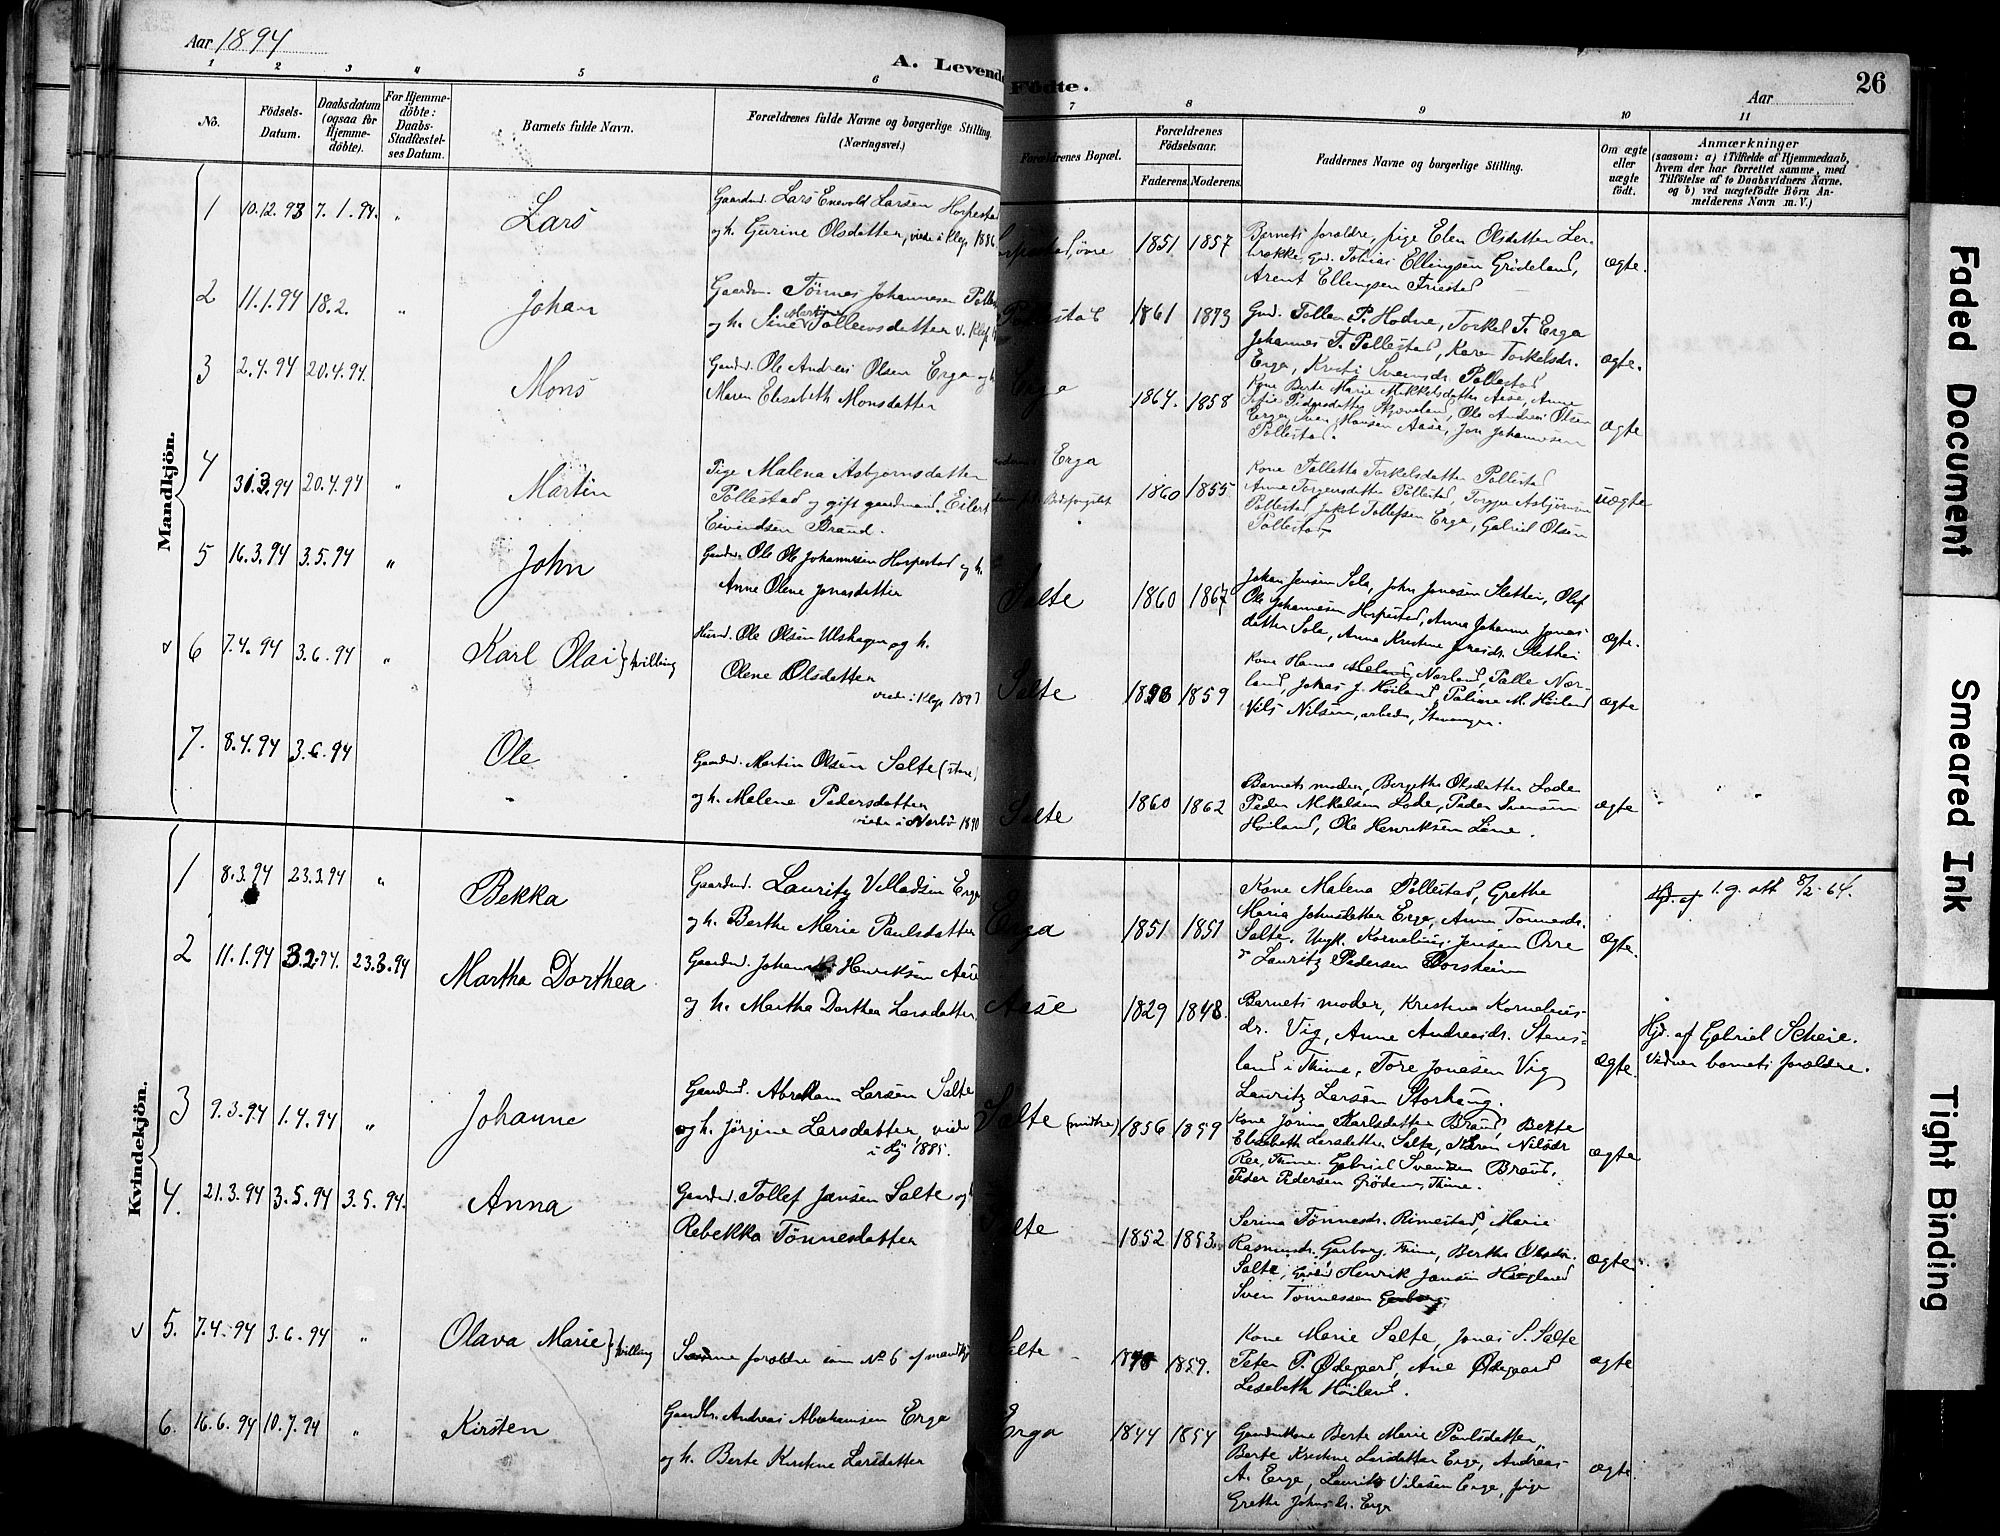 Aar 1894
A. Levende Födte.
Aar
26
1 2 3 4 5 6 7 8 9 10 11
No.
Födsels-Datum.
Daabsdatum (ogsaa for Hjemme-döbte).
For Hjemme-döbte: Daabs-Stadfæstel-ses Datum.
Barnets fulde Navn.
Forældrenes fulde Navne og borgerlige Stilling. (Næringsvei.)
Forældrenes Bopæl.
Forældrenes Födselsaar.
Faderens. Moderens.
Faddernes Navne og borgerlige Stilling.
Om ægte eller uægte födt.
Anmærkninger
(saasom: a) i Tilfælde af Hjemmedaab, hvem der har forrettet samme, med Tilföielse af to Daabsvidners Navne, og b) ved uægtefödte Börn An-melderens Navn m. V.)
Mandkjön.
1 10.12.93 7.1.94. " Lars
Gaardm. Lars Enevold Larsen Horpestad
og h. Gurine Olsdatter, viede i Klep 1886
øvre 1851 1857
Barnets foraldre, pige Elen Olsdatter Ler-
brække, Gmd. Tobias Ellingsen Grödeland,
Arent Ellingsen Friestad
ægte.
2 11.1.94 18.2. " Johan
Gaardm. Tönnes Johannesen
og h. Sine Martine Tollevsdatter v. Klep
1861 1873
Gmd. Tollen P. Hodne, Torkel T. Erga
Johannes T. Pollestad, Karen Torkelsdr.
Erga, Kristi Svensdr. Pollestad
ægte.
3 2.4.94 20.4.94. Mons
Gaardm. Ole Andreas Olsen Erga og h.
Maren Elisabeth Monsdatter
Erga 1864. 1858
Kone Berte Marie Mikkelsdatter Aase, Anne
Sofie Pedersdatter Ole Andreas Olsen
Erga, Sven Hansen Aase, Jon Johannesen
Pollestad.
ægte
4 31.3.94 20.4.94 " Martin
Pige Malena Asbjørnsdatter
Pollestad og gift gaardmand. Eilert
Eivendsen Braud.
Erga
1860 1855
Kone Talletta Torkelsdatter Pollestad
Anne Torgersdatter Pollestad, Torger Asbjörnsen
Pollestad, Jakob Tollefsen Erga, Gabriel Olsen
Pollestad
uægte
5 16.3.94 3.5.94 " John
Gaardm. Ole Ole Johannesen Horpestad og h.
Anne Olene Jonasdatter
Salte 1860 1867
Johan Jensen Sola, John Jonasen Sletten, Olef
Ole Johannesen Horpestad, Anna Johanne Jonas-
datter Sola, Anne Kristine Jonasdr. Slethei
ægte.
v 6 7.4.94 3.6.94 " Karl Olai } tvilling
Husmd. Ole Olsen Ulshagen og h.
Olene Olsdatter
viede i Klep 1893
Salte 1859
Kone Hanna Norland, Palle Nor-
land, Jonas J. Höiland, Paline M. Höiland
Nils Nilsen, arbeider, Stavanger.
ægte
7. 8.4.94 3.6.94 Ole
Gaardm. Martin Olsen Salte (store)
og h. Malene Pedersdatter
viede i Nærbö 1890
Salte 1860 1862
Barnets moder, Bergithe Olsdatter Lode
Peder Mikelsen Lode, Peder Svensen
Höiland, Ole Henriksen Line.
ægte
Kvindekjön.
1 8.3.94 23.3.94 " Bekka
Gaardmd. Lauritz Villadsen Erga
og h. Berthe Marie Paulsdatter
Erga 1851 1851
Kone Malena Pollestad, Grethe
Maria Johnsdatter Erga, Anna Tonnesdr.
Salte, Ungk. Kornelius Jensen Orre
Lauritz Pedersen Borsheim
ægte.
1.g. att 8/2-64.
2 11.1.94 3.2.94. 23.3.94 Martha Dorthea
Gaardmd. Johannes Henriksen Aase
og h. Martha Dorthea Larsdatter.
Aase 1829 1848.
Barnets moder, Kristina Kornelius-
dr. Vig, Anne Andreasdr. Stens-
land i Thime, Tore Jonasen Vig
Lauritz Larsen Storhaug.
ægte.
Hjd. af Gabriel Scheie.
Vidner barnets forældre.
3 9.3.94 1.4.94 " Johanne
Gaardmd. Abraham Larsen Salte
og h. Jörgine Larsdatter, viede
i Hj 1885.
Salte (midtre) 1856 1859
Kone Jorina Karlsdatter Braud, Bekke
Elisabeth Larsdatter Salte, Karen Nilsdr
Ree, Thime. Gabriel Svendsen Braud,
Peder Pedersen Grödem, Thime.
ægte
4. 21.3.94 3.5.94 3.5.94. Anna
Gaardm. Tollef Jansen Salte og h.
Rebekka Tönnesdatter
Salte 1852 1853
Serina Tönnesdr. Rimestad, Marie
Rasmusdr. Garborg, Thime, Berthe Olsdr.
Salte, Henrik Jansen Högland
Sven Tonnessen
ægte
v 5. 7.4.94 3.6.94 " Olava Marie } tvilling
Samme foraldre som No 6 af mandkj
Salte 1859.
Kone Marie Salte, Jonas S. Salte
Peter P. Ødegaard, Ane Ødegaard
Lisebeth Höiland.
ægte
6. 16.6.94 10.7.94 " Kirsten
Gaardbr. Andreas Abrahamsen Erga
og h. Berte Kirstine Larsdatter
Erga 1844 1854
Gaardmkone Berte Marie Paulsdatter,
Berte Kirstine Larsdatter Erga, Andreas
A. Erga, Laurits Vilesen Erga, pige
Grethe Johnsdr. Erga
ægte.
Faded Document
Smeared Ink
Tight Binding